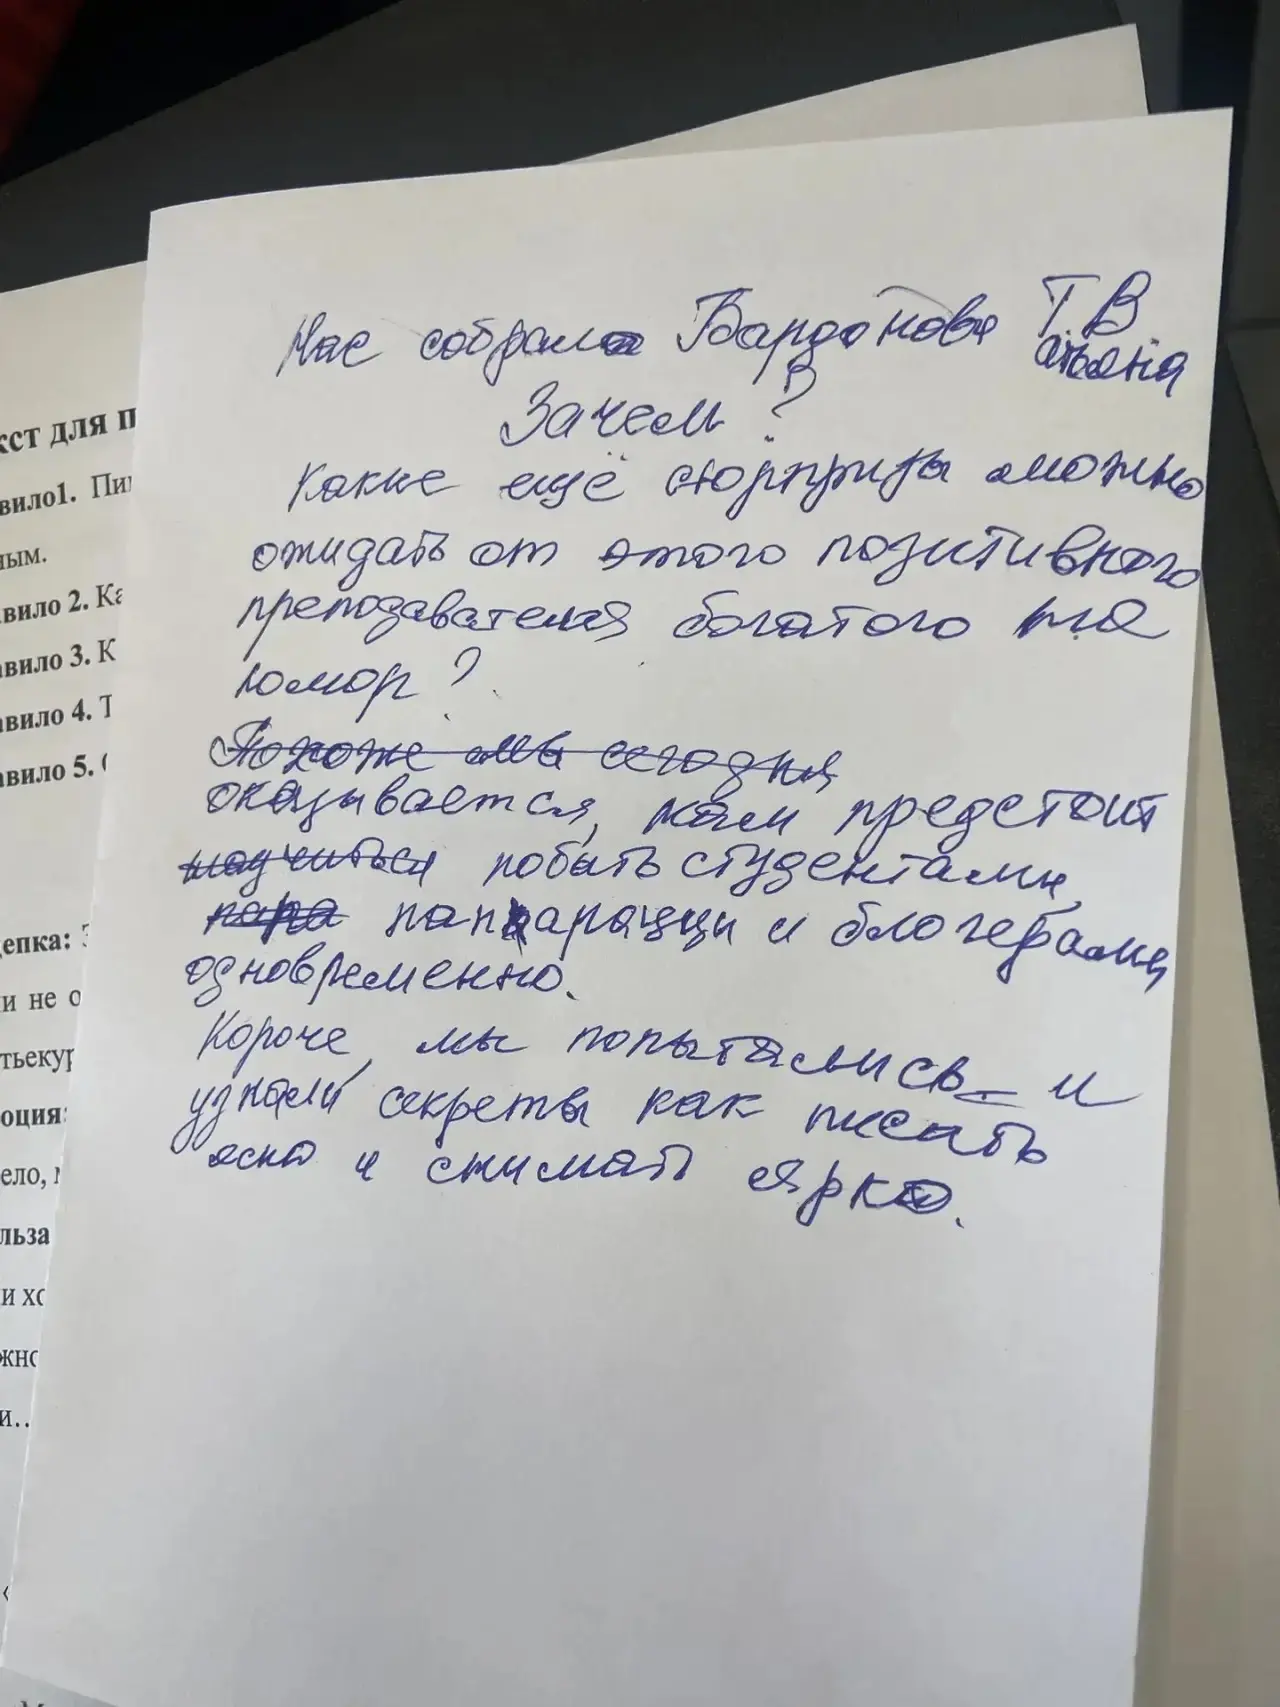 Нас собрала Вардонова Т.В.
атьяна
Зачем?
Какие ещё сюрпризы можно
ожидать от этого позитивного
преподавателя богатого на
юмор?
Похоже мы сегодня
оказывается, нам предстоит
научиться побыть студентами,
папа папарацци и блогерами
одновременно.
Короче, мы попытались и
узнали секреты как писать
ясно и снимать ярко.
кст для п
вило1. Пи
ным.
авило 2. Ка
авило 3. К
авило 4. Т
авило 5.
цепка: З
и не о
тьекур
оция:
ело, м
льза
и хо
жно
и...